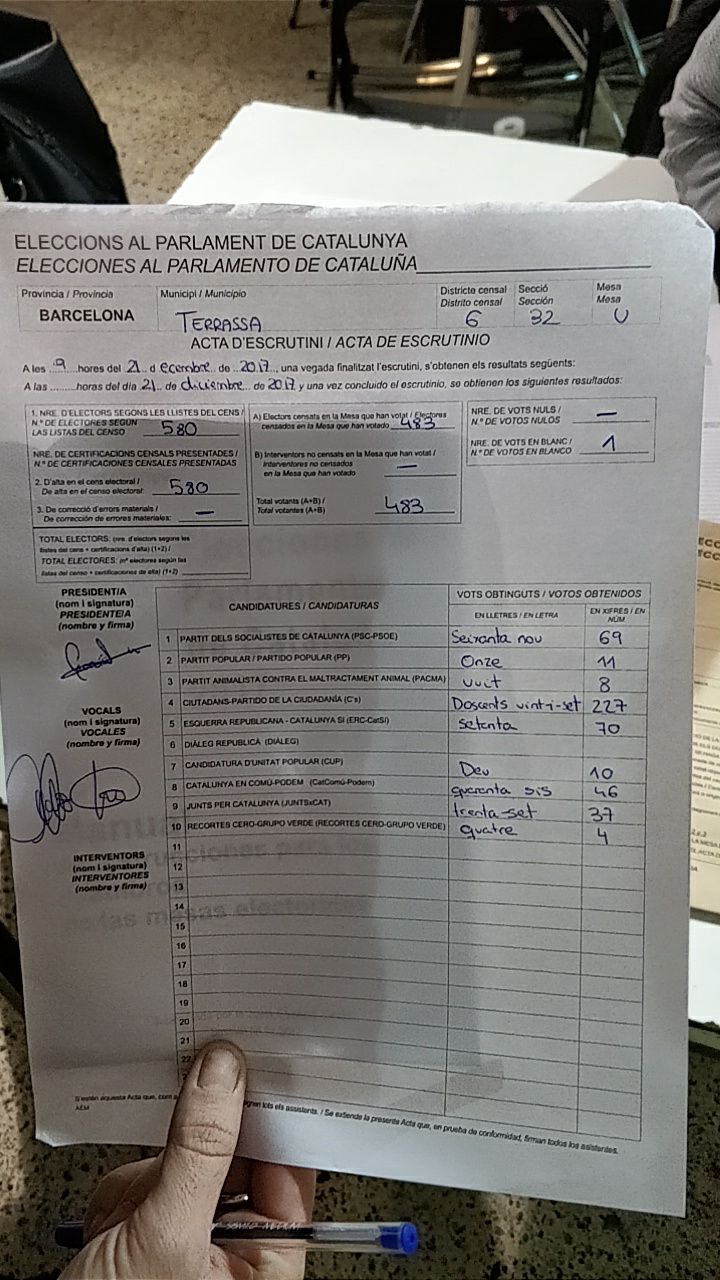 ELECCIONS AL PARLAMENT DE CATALUNYA
ELECCIONES AL PARLAMENTO DE CATALUÑA
Provincia / Provincia
BARCELONA
Municipi / Municipio
TERRASSA
Districte censal
Distrito censal
6
Secció
Sección
32
Mesa
Mesa
U
ACTA D'ESCRUTINI / ACTA DE ESCRUTINIO
A les ..9.. hores del 21.. d ecembre.. de ..2017.., una vegada finalitzat l'escrutini, s'obtenen els resultats següents:
A las ......... horas del día 21.. de diciembre.. de 2017 y una vez concluido el escrutinio, se obtienen los siguientes resultados:
1. NRE. D'ELECTORS SEGONS LES LLISTES DEL CENS /
N.º DE ELECTORES SEGÚN
LAS LISTAS DEL CENSO 580
NRE. DE CERTIFICACIONS CENSALS PRESENTADES /
N.º DE CERTIFICACIONES CENSALES PRESENTADAS
2. D'alta en el cens electoral /
De alta en el censo electoral: 580
3. De correcció d'errors materials /
De corrección de errores materiales: —
TOTAL ELECTORS: (nre. d'electors segons les
llistes del cens + certificacions d'alta) (1+2) /
TOTAL ELECTORES: (nº electores según las
listas del censo + certificaciones de alta) (1+2)
A) Electors censats en la Mesa que han votat / Electores
censados en la Mesa que han votado 483
B) Interventors no censats en la Mesa que han votat /
Interventores no censados
en la Mesa que han votado —
Total votants (A+B) /
Total votantes (A+B) 483
NRE. DE VOTS NULS /
N.º DE VOTOS NULOS —
NRE. DE VOTS EN BLANC /
N.º DE VOTOS EN BLANCO 1
PRESIDENT/A
(nom i signatura)
PRESIDENTE/A
(nombre y firma)
VOCALS
(nom i signatura)
VOCALES
(nombre y firma)
INTERVENTORS
(nom i signatura)
INTERVENTORES
(nombre y firma)
CANDIDATURES / CANDIDATURAS
VOTS OBTINGUTS / VOTOS OBTENIDOS
EN LLETRES / EN LETRA
EN XIFRES / EN NÚM
1 PARTIT DELS SOCIALISTES DE CATALUNYA (PSC-PSOE) Seixanta nou 69
2 PARTIT POPULAR / PARTIDO POPULAR (PP) Onze 11
3 PARTIT ANIMALISTA CONTRA EL MALTRACTAMENT ANIMAL (PACMA) vuit 8
4 CIUTADANS-PARTIDO DE LA CIUDADANÍA (C's) Doscents vint-i-set 227
5 ESQUERRA REPUBLICANA - CATALUNYA SÍ (ERC-CatSí) setenta 70
6 DIÀLEG REPUBLICÀ (DIÀLEG)
7 CANDIDATURA D'UNITAT POPULAR (CUP) Deu 10
8 CATALUNYA EN COMÚ-PODEM (CatComú-Podem) quaranta sis 46
9 JUNTS PER CATALUNYA (JUNTSxCAT) trenta-set 37
10 RECORTES CERO-GRUPO VERDE (RECORTES CERO-GRUPO VERDE) quatre 4
11
12
13
14
15
16
17
18
19
20
21
22
S'estén aquesta Acta que, com a
signen tots els assistents. / Se extiende la presente Acta que, en prueba de conformidad, firman todos los asistentes.